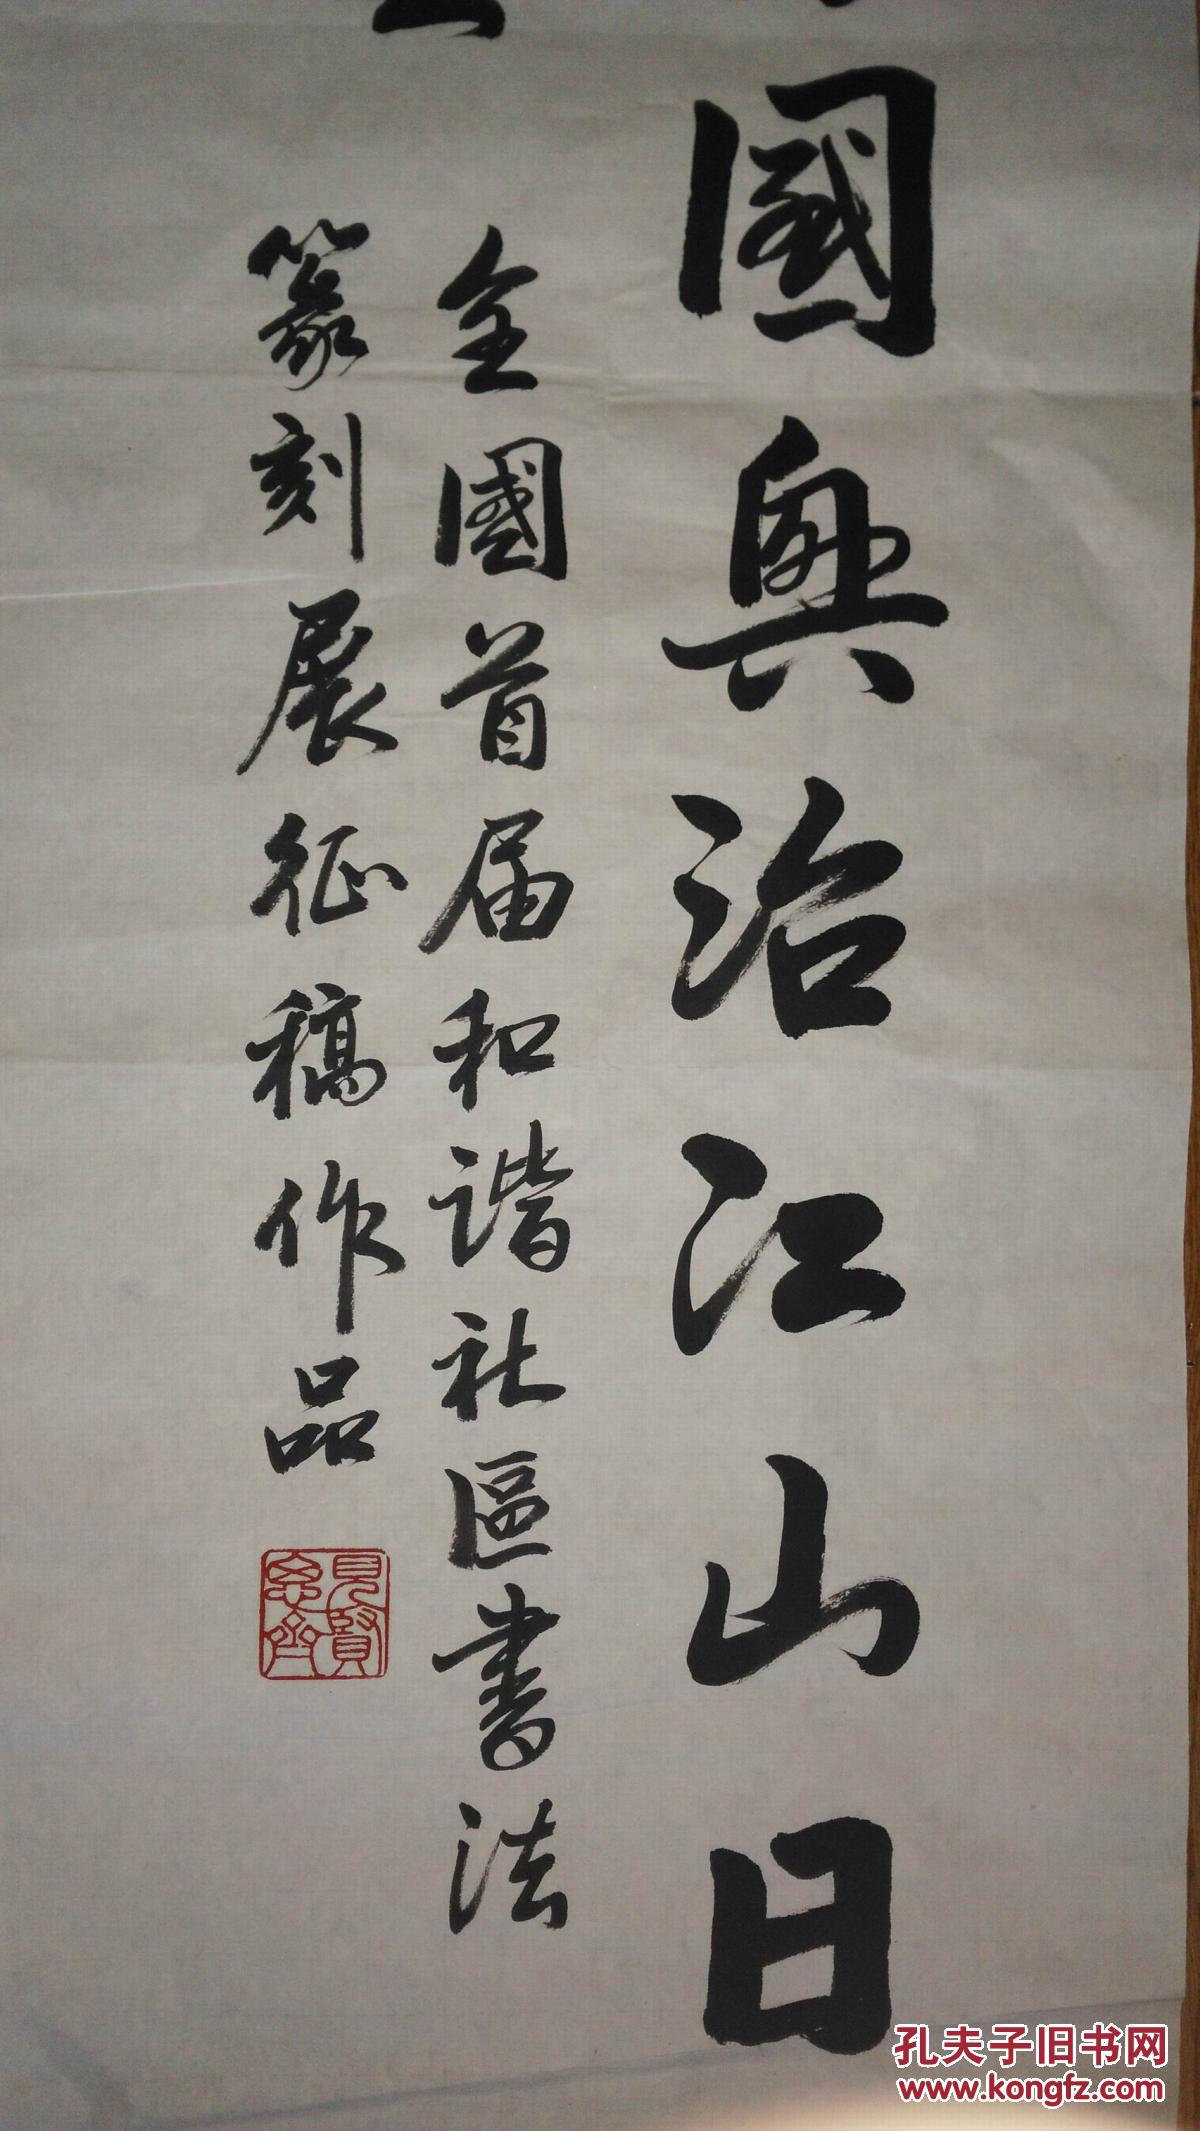 國興治江山日
全國首届和谐社區書法
篆刻展征稿作品
見賢思齊
孔夫子旧书网
www.kongfz.com